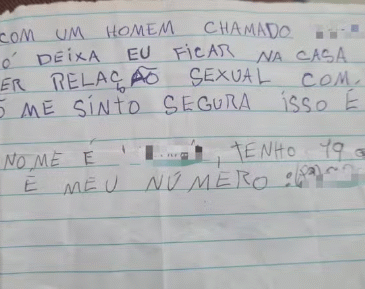 COM UM HOMEM CHAMADO
Ó DEIXA EU FICAR NA CASA
ER RELAÇÃO SEXUAL COM.
ME SINTO SEGURA ISSO É
NOME É ' ', TENHO 19
É MEU NÚMERO :